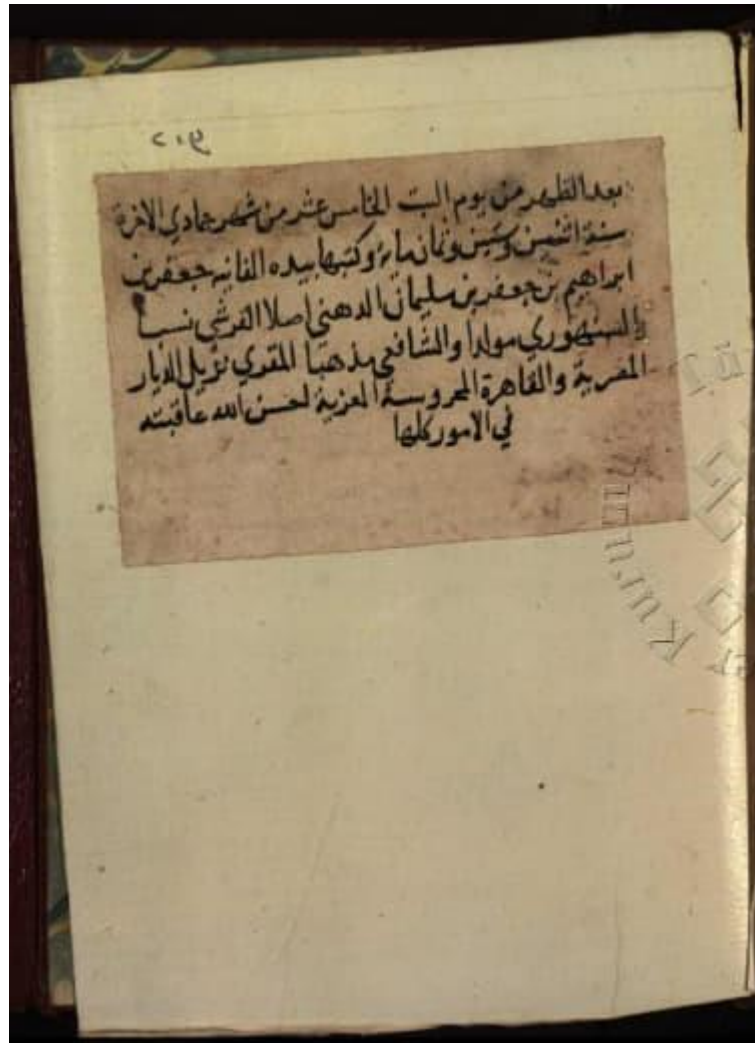 بعد الظهر من يوم السبت الخامس عشر من شهر جمادي الاخرة
سنة اثنين وستين وثمان مائة وكتبها بيده الفانيه جعفر بن
ابراهيم بن جعفر بن سليمان الدهني اصلا القرشي نسبا
والسنهوري مولدا والشافعي مذهبا المقري نزيل الديار
المصرية والقاهرة المحروسة المعزية احسن الله عاقبته
في الامور كلها